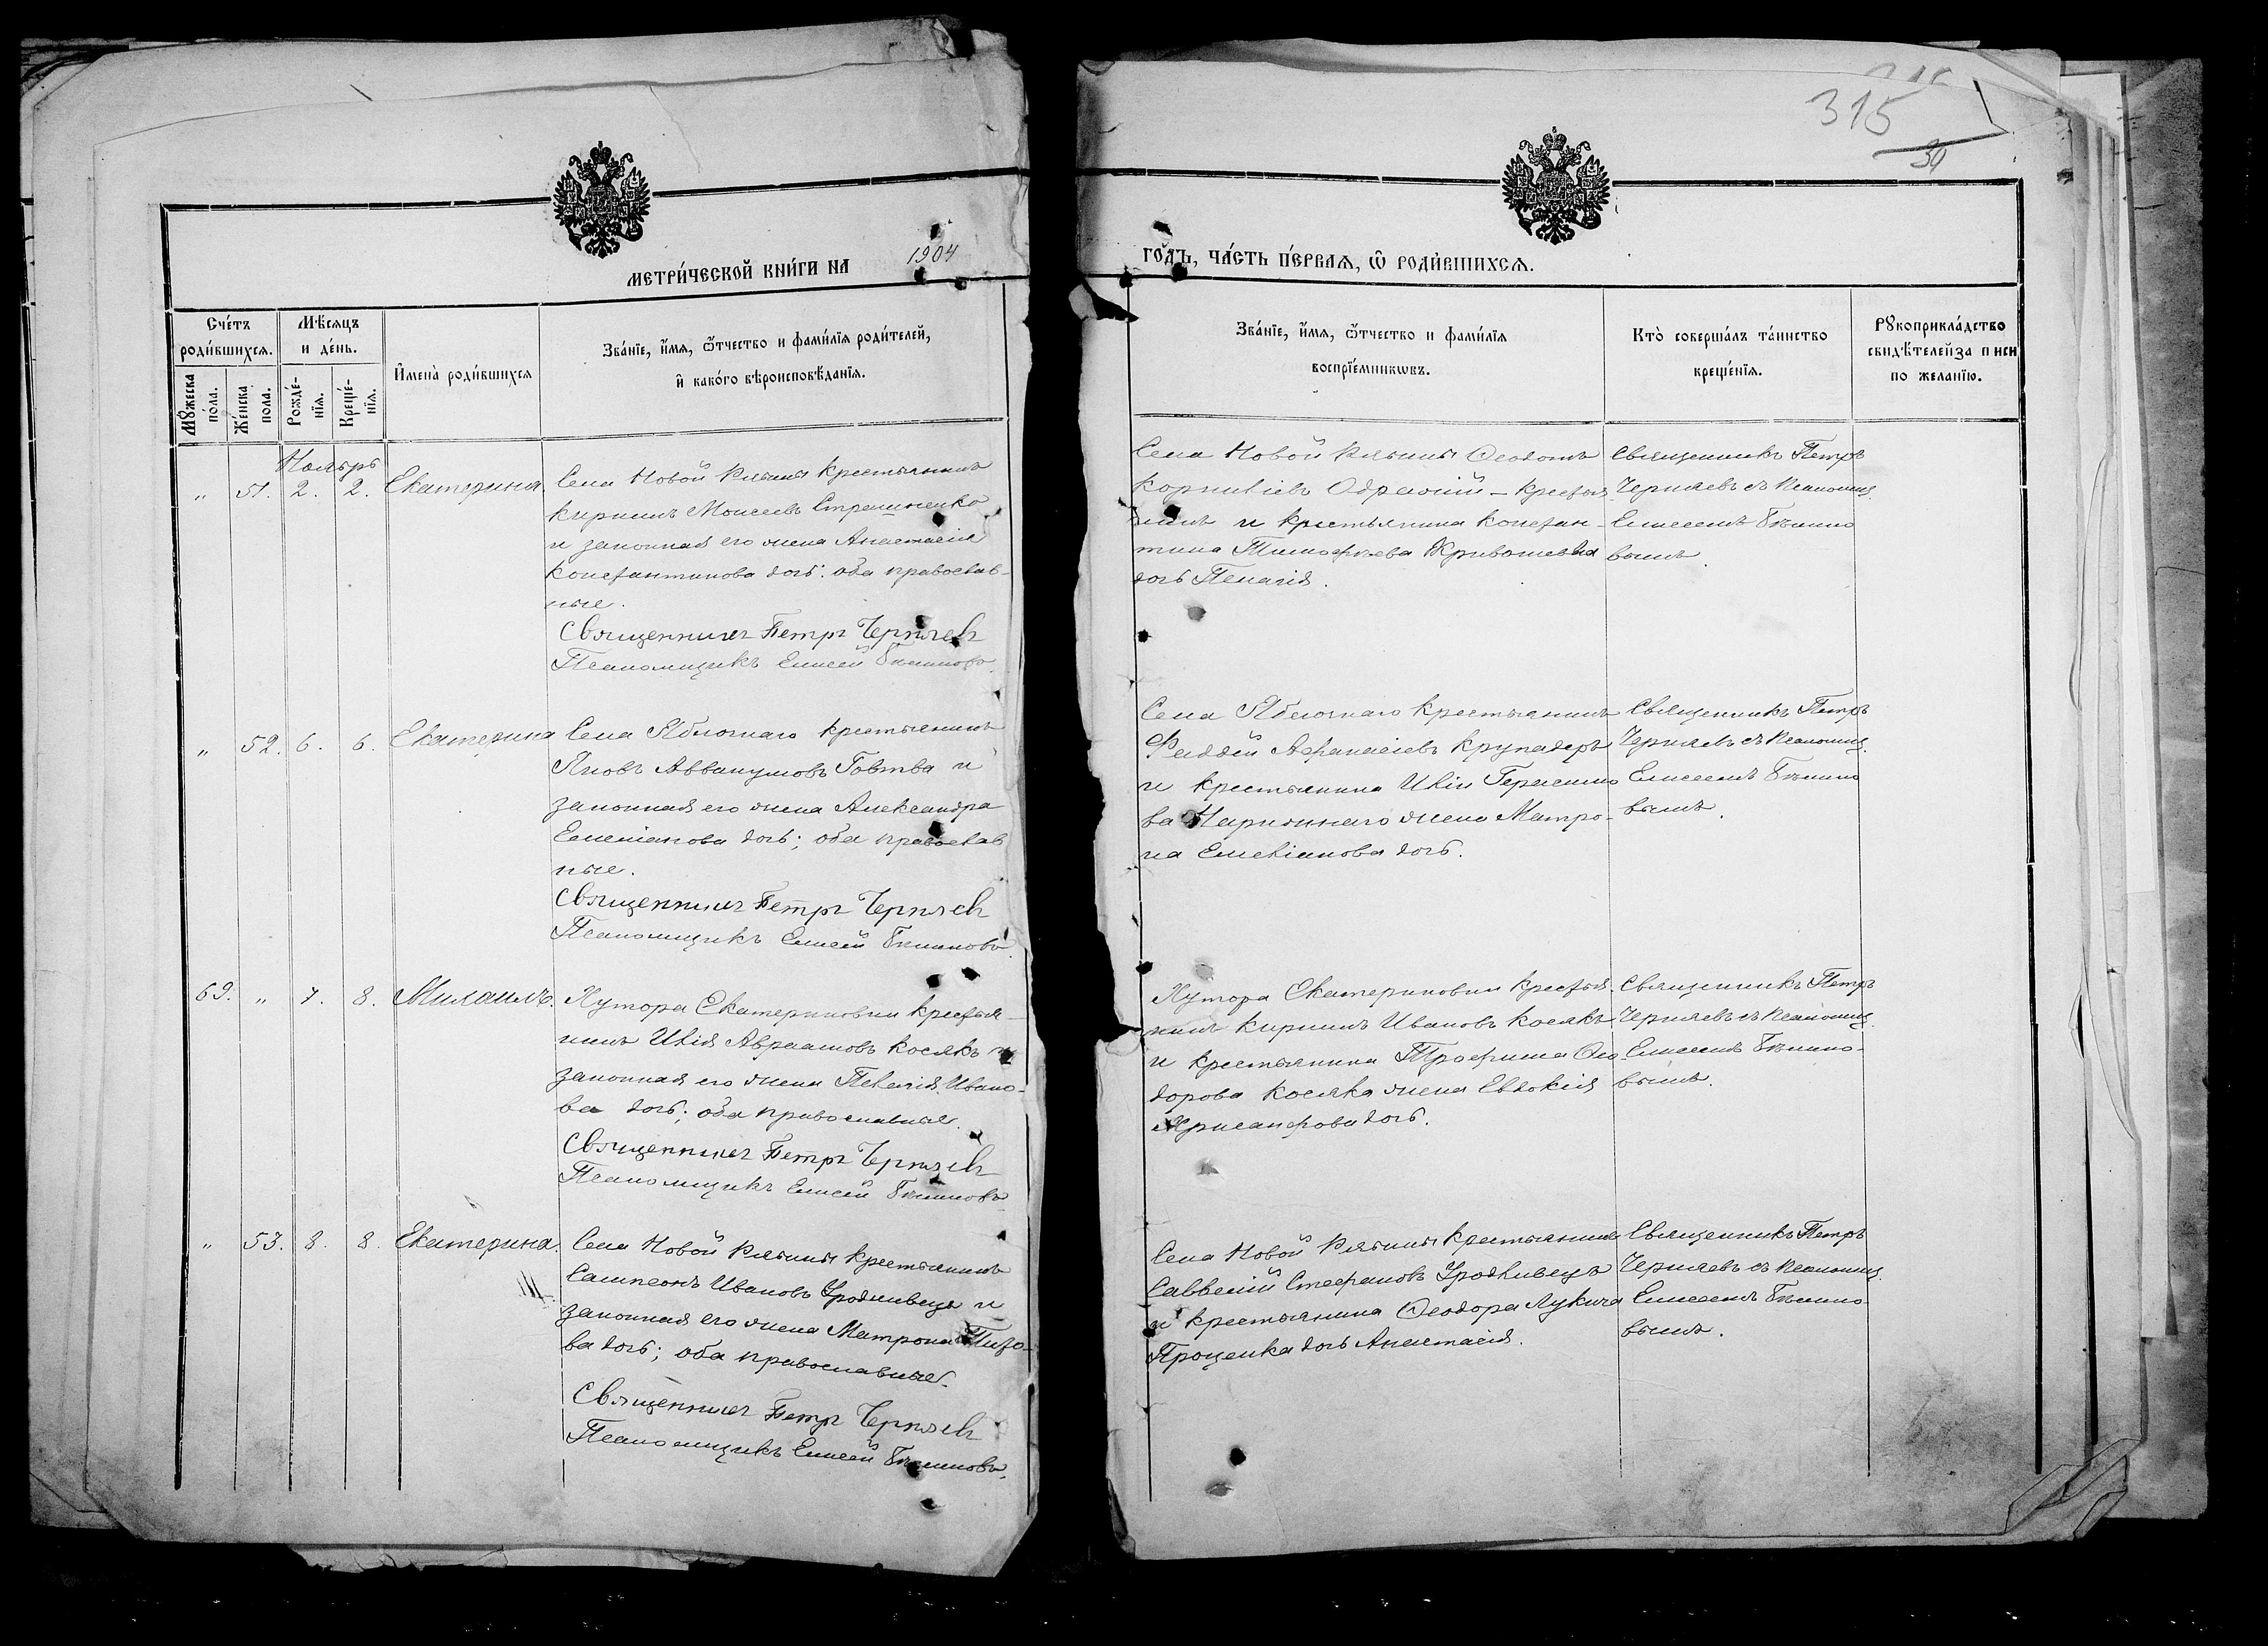 315
30
МЕТРИ́ЧЕСКОЙ КНИ́ГИ НА 1904
ГО́ДЪ, ЧА́СТЬ ПЕ́РВАЯ, Ѽ РОДИ́ВШИХСЯ.
Сче́тъ родившихся.
Мꙋжеска по́ла.
Же́нска пола.
Мѣ́сяцъ и де́нь.
Рожде́-нїя.
Креще́-нїя.
И҆мена̀ роди́вшихся
Зва́нїе, и҆́мя, ѻ҆́тчество и фами́лїя роди́телей,
и҆ како́го вѣроисповѣ́данїя.
Зва́нїе, и҆́мя, ѻ҆́тчество и фами́лїя
воспрїе́мниковъ.
Кто̀ соверша́лъ та́инство
креще́нїя.
Рꙋкоприкла́дство
свидѣ́телей записи
по жела́нїю.
Ноябрь
„ 51. 2. 2. Екатерина.
Села Новой Рябины крестьянинъ
Кириллъ Моисеевъ Страшненко
и законная его жена Анастасія
Константинова дочь: оба православ-
ные.
Священникъ Петръ Черняевъ
Псаломщикъ Елисей
Села Новой Рябины Ѳеодотъ
Корниліевъ - крестья
нинъ и крестьянина Констан-
тина Тимоѳеева Кривошея
дочь Пелагія.
Священникъ Петръ
Черняевъ съ Псаломщ.
Елисеемъ
вымъ.
„ 52. 6. 6. Екатерина
Села Яблочнаго крестьянинъ
Яковъ Аввакумовъ Говтва и
законная его жена Александра
Емеліанова дочь; оба православ
ные.
Священникъ Петръ Черняевъ
Псаломщикъ Елисей
Села Яблочнаго крестьянинъ
Фаддей Аѳанасіевъ Крупадеръ
и крестьянина Иліи Герасимо
ва жена Матро-
на Емеліанова дочь.
Священникъ Петръ
Черняевъ съ Псаломщ.
Елисеемъ
вымъ.
69. „ 7. 8. Михаилъ.
Хутора Екатериновки крестья-
нинъ Илія Авраамовъ Косякъ и
законная его жена Пелагія Ивано-
ва дочь; оба православные.
Священникъ Петръ Черняевъ
Псаломщикъ Елисей
Хутора Екатериновки крестья-
нинъ Кириллъ Ивановъ Косякъ
и крестьянина Трофима Ѳео-
дорова Косяка жена Евдокія
Хрисанфова дочь.
Священникъ Петръ
Черняевъ съ Псаломщ.
Елисеемъ
вымъ.
„ 53. 8. 8. Екатерина.
Села Новой Рябины крестьянинъ
Сампсонъ Ивановъ и
законная его жена Матрона Тито-
ва дочь; оба православные.
Священникъ Петръ Черняевъ
Псаломщикъ Елисей
Села Новой Рябины крестьянинъ
Савватій Стефановъ
и крестьянина Ѳеодора Лукича
Проценка дочь Анастасія.
Священникъ Петръ
Черняевъ съ Псаломщ.
Елисеемъ
вымъ.